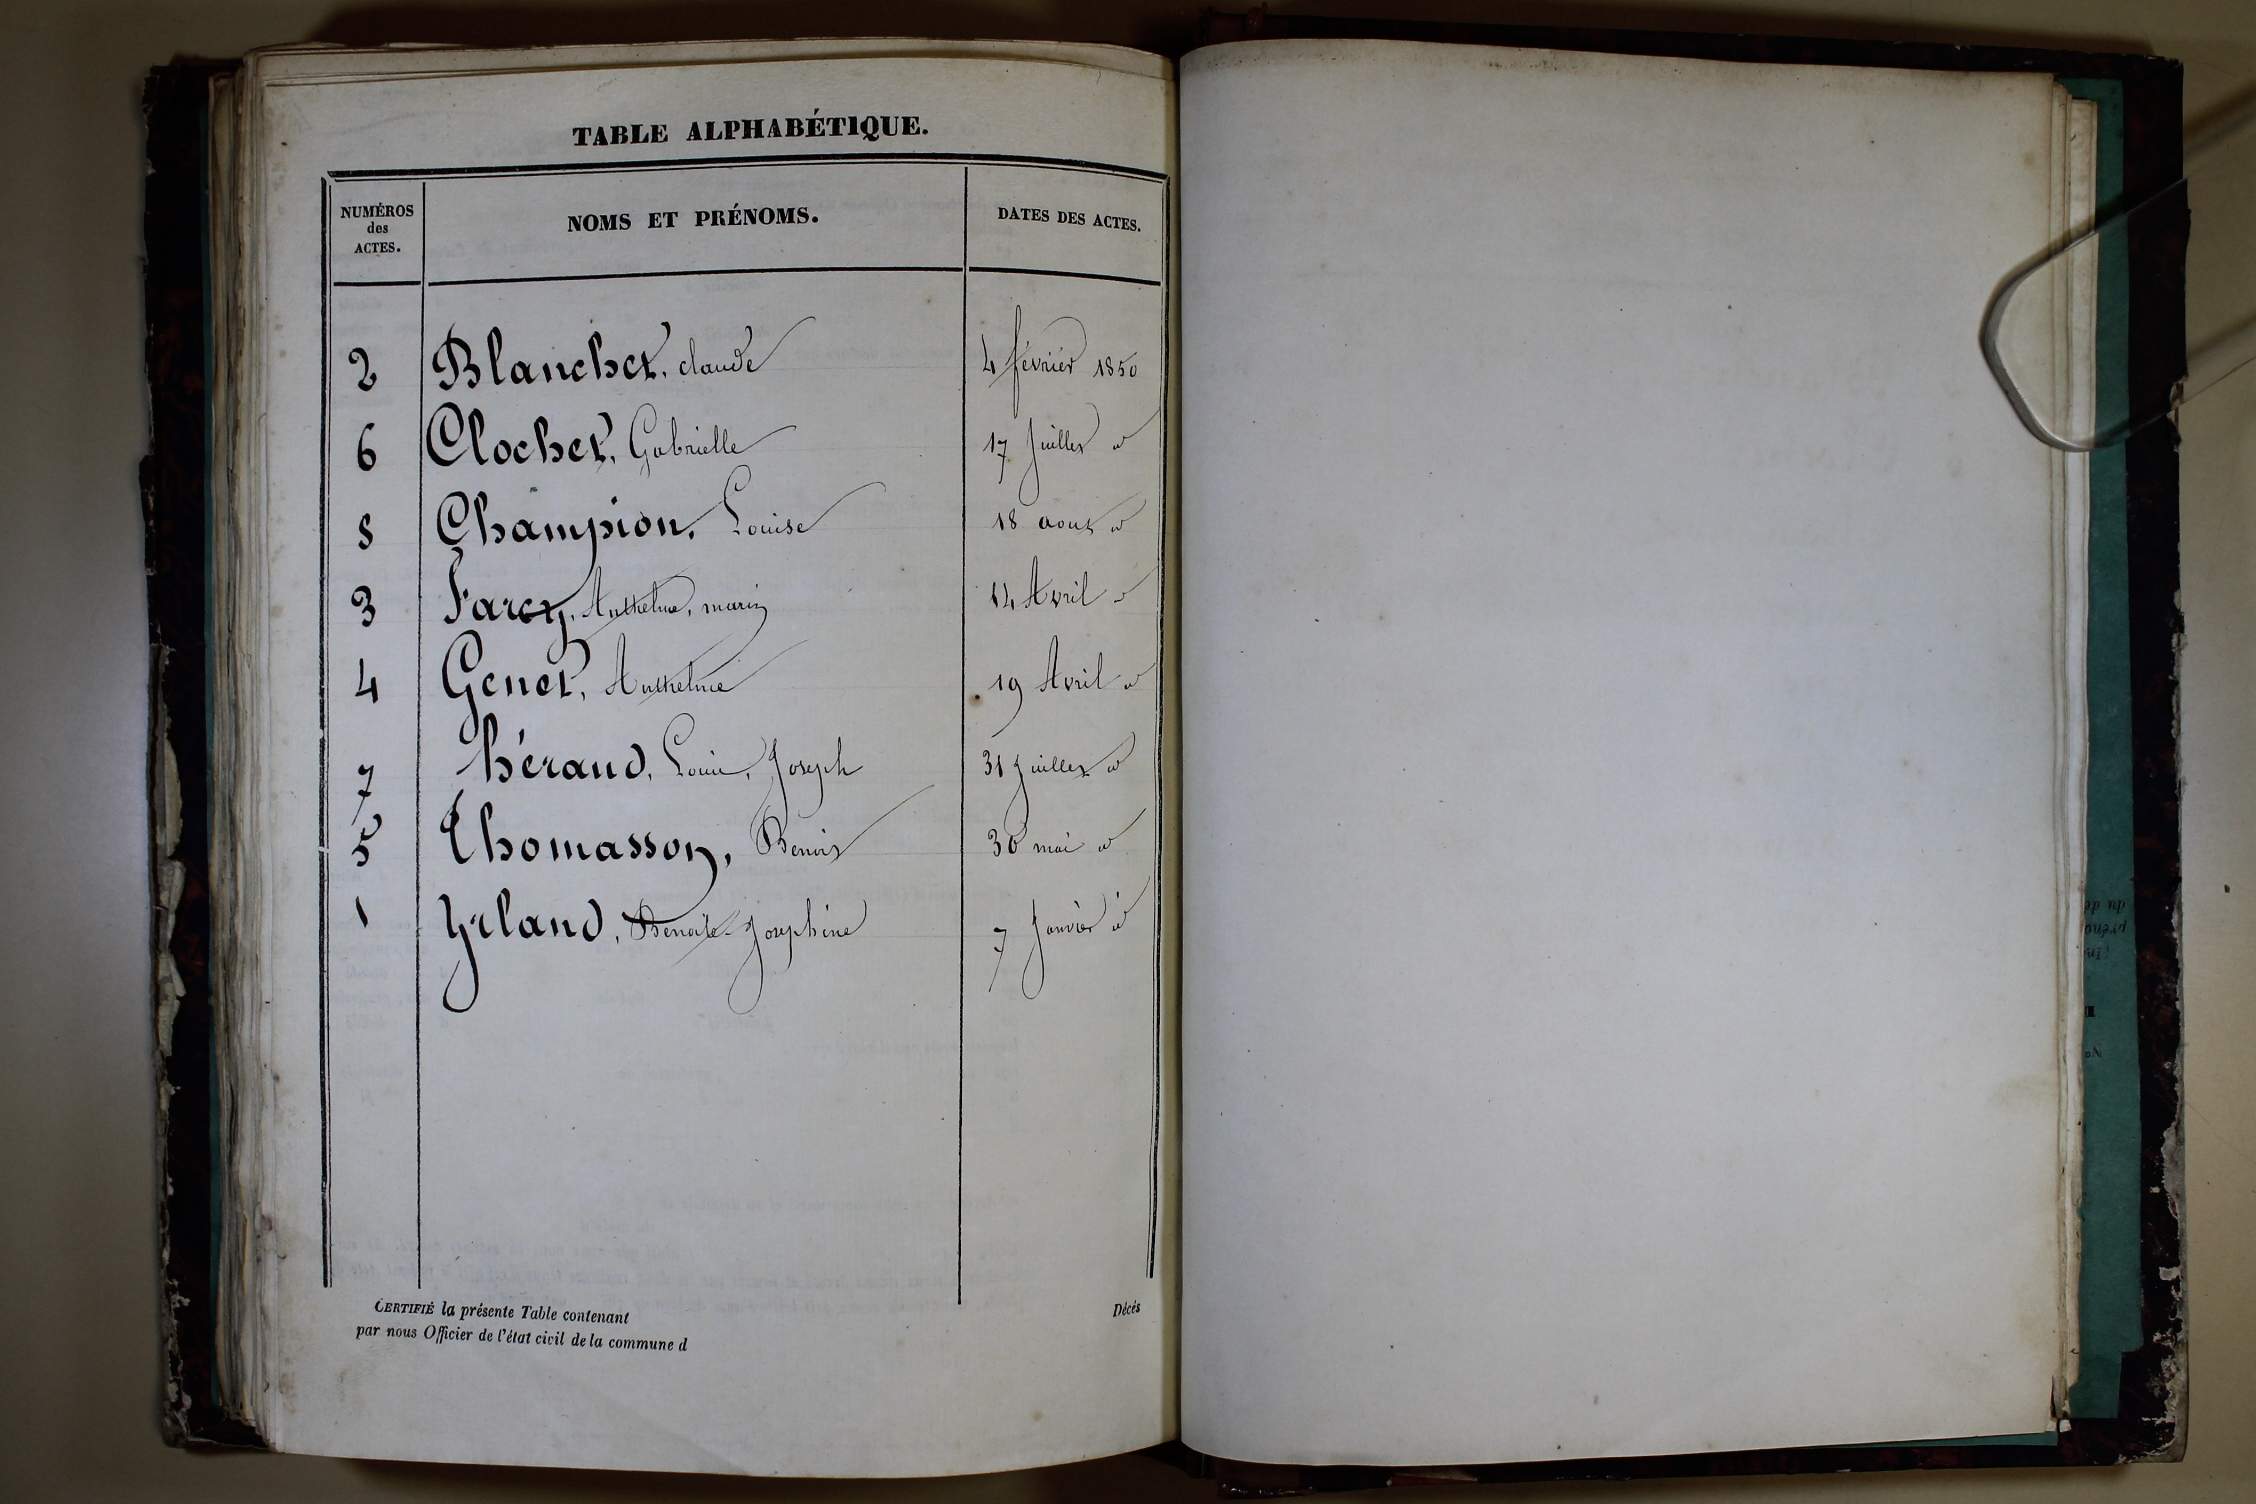 TABLE ALPHABÉTIQUE.
NUMÉROS des ACTES. NOMS ET PRÉNOMS. DATES DES ACTES.
2 Blanchet, claude 4 février 1850
6 Clochet, Gabrielle 17 Juillet d
8 Champion, Louise 18 aout d
3 Farcy, Anthelme, marin 14 Avril d
4 Genet, Anthelme 19 Avril d
7 héraud, Louis, Joseph 31 Juillet d
5 Thomasson, Benoit 30 mai d
1 Yrland, Benoite Joséphine 7 Janvier d
CERTIFIÉ la présente Table contenant
par nous Officier de l'état civil de la commune d
Décés